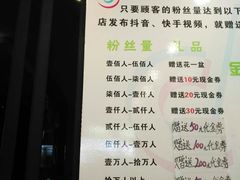 只要顾客的粉丝量达到以下
店发布抖音、快手视频，就赠送
粉丝量 礼品
壹佰人-伍佰人 赠送花一盆
伍佰人-柒佰人 赠送10元现金券
柒佰人-壹仟人 赠送20元现金券
壹仟人-贰仟人 赠送30元现金券
贰仟人-伍仟人 赠送50代金券
伍仟人-壹万人 赠送100代金券
壹万人-拾万人 赠送200代金券
拾万人以上
金